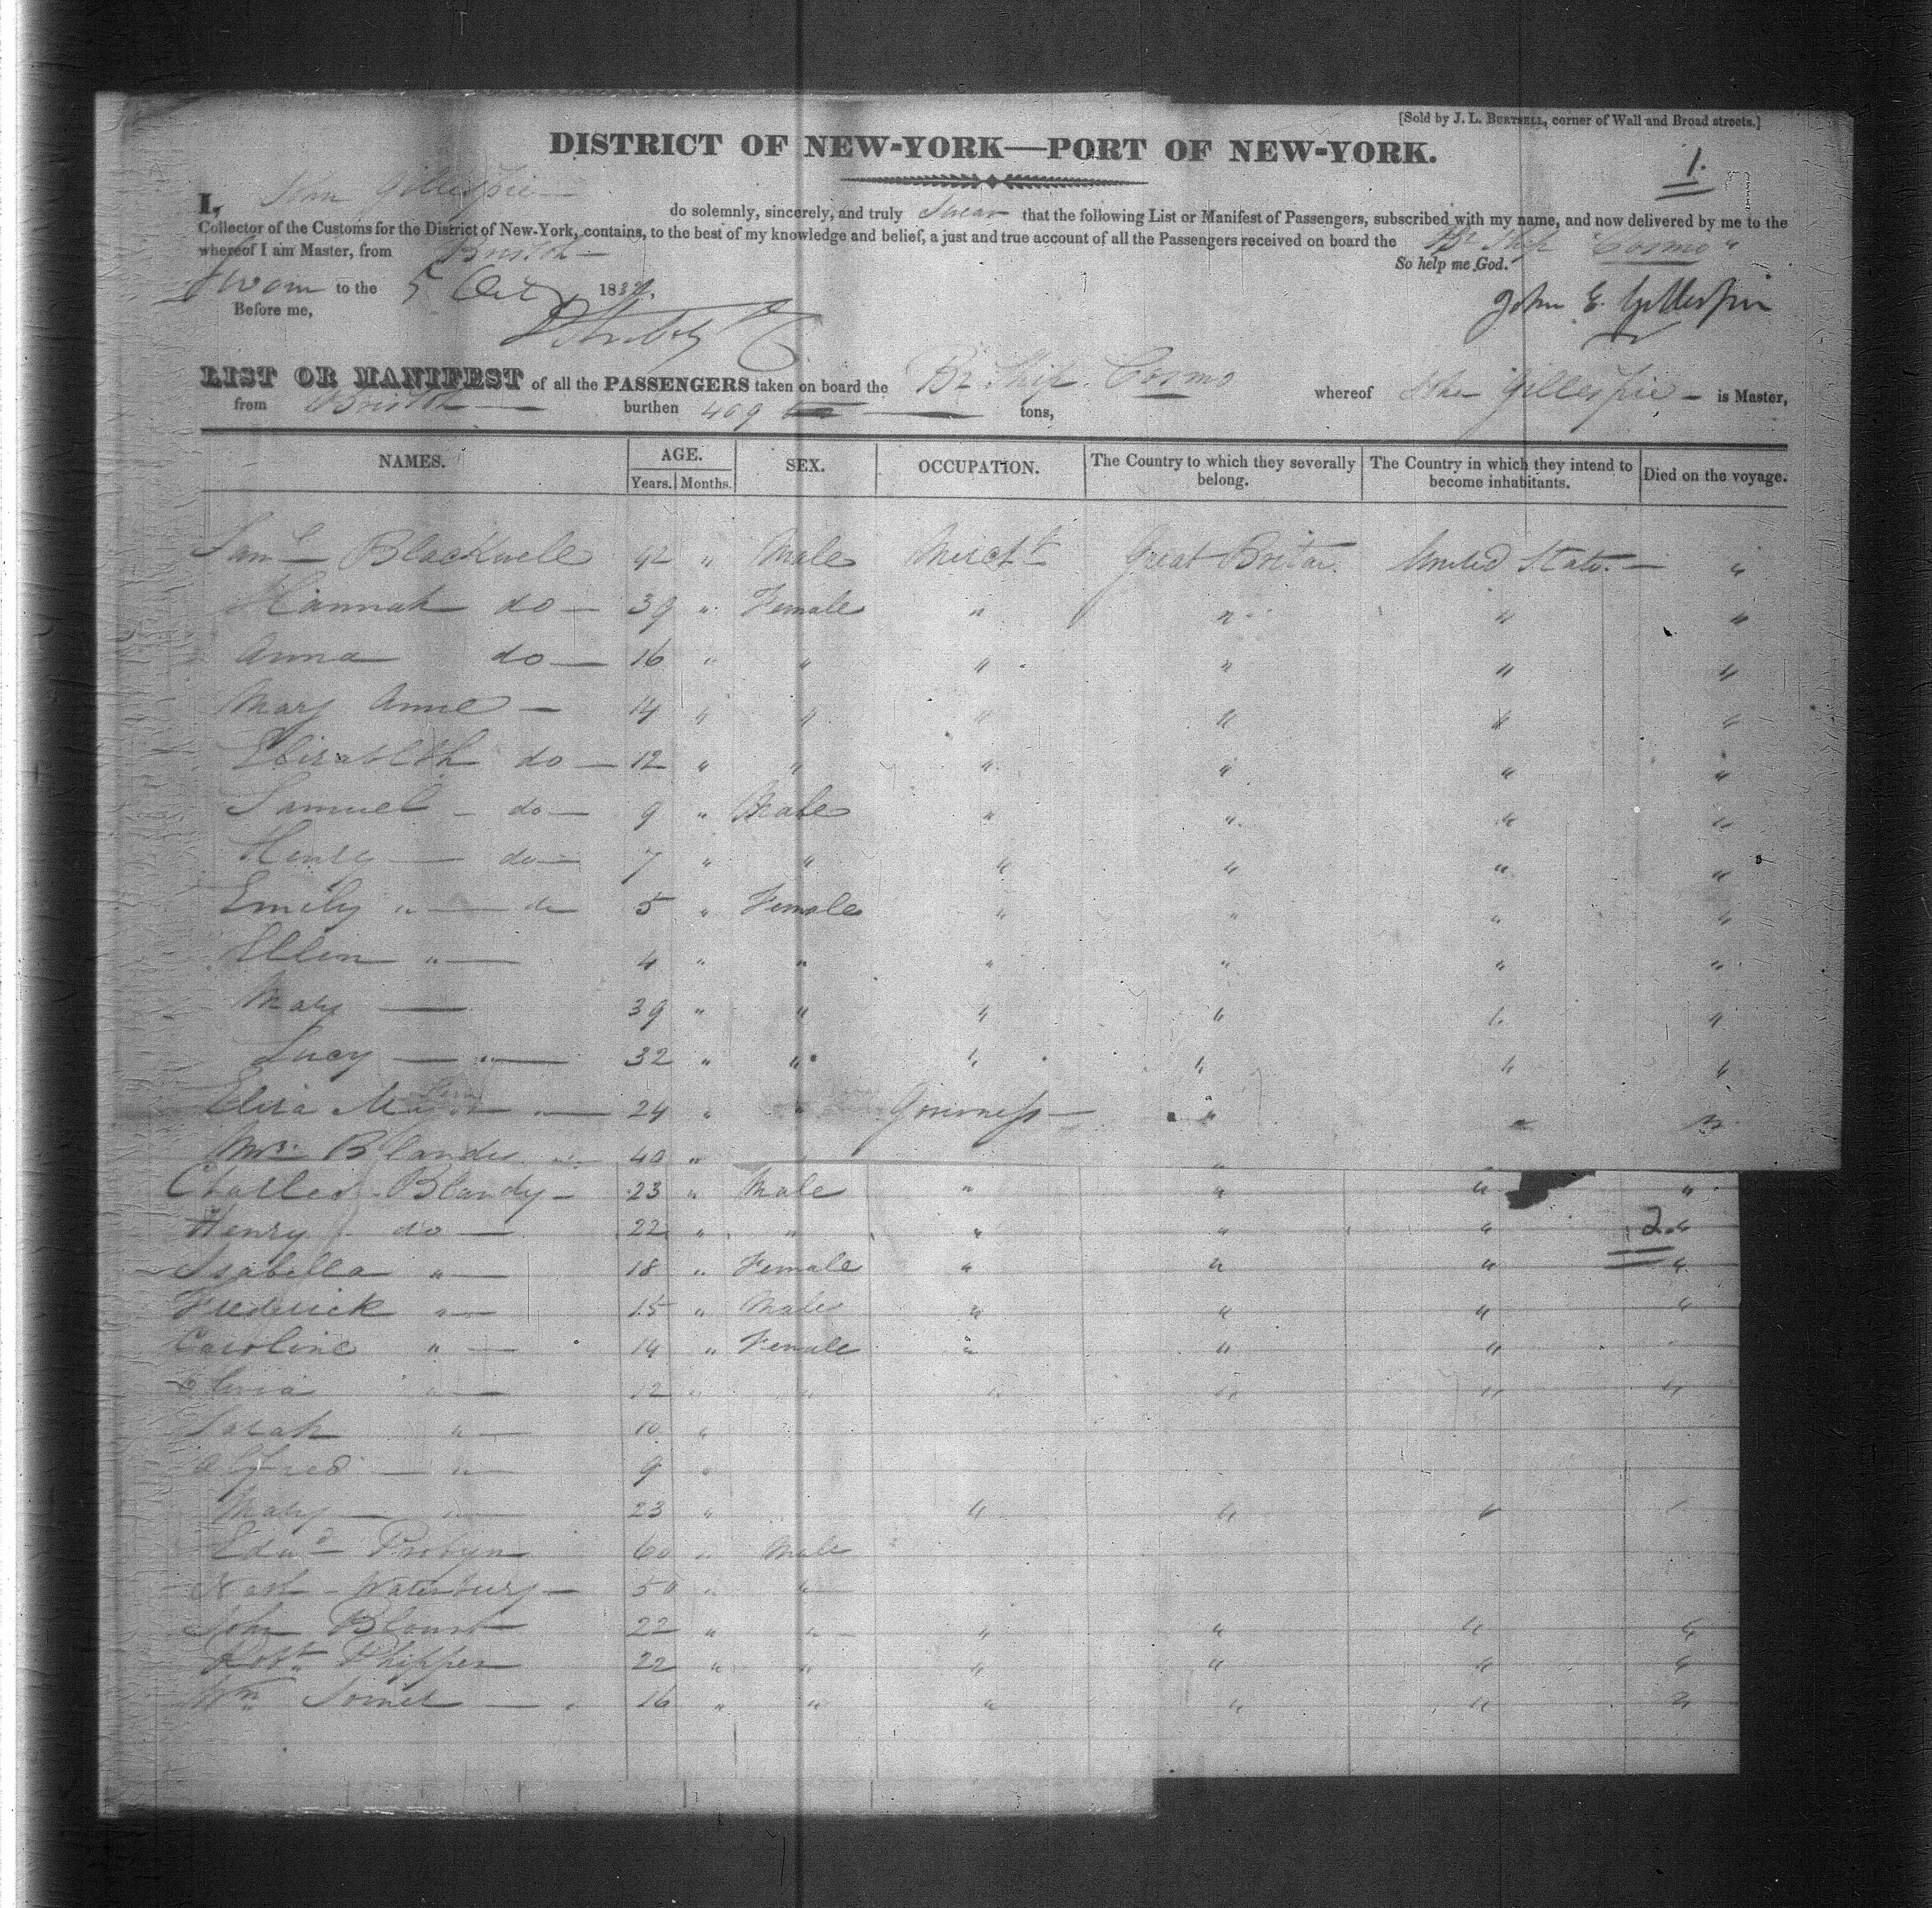 [Sold by J. L. BURTSELL, corner of Wall and Broad streets.]
DISTRICT OF NEW-YORK—PORT OF NEW-YORK.
1.
I, John Gillespie do solemnly, sincerely, and truly Swear that the following List or Manifest of Passengers, subscribed with my name, and now delivered by me to the
Collector of the Customs for the District of New-York, contains, to the best of my knowledge and belief, a just and true account of all the Passengers received on board the Br Ship "Cosmo"
whereof I am Master, from Bristol— So help me God.
Sworn to the 5 Oct 1832. John E. Gillespie
Before me,
LIST OR MANIFEST of all the PASSENGERS taken on board the Br. Ship. Cosmo whereof John Gillespie — is Master,
from Bristol — burthen 409 tons,
NAMES. AGE. SEX. OCCUPATION. The Country to which they severally belong. The Country in which they intend to become inhabitants. Died on the voyage.
Years. Months.
Saml Blackwell 42 " Male Mercht Great Britain United States — "
Hannah do — 39 " Female " " " "
Anna do — 16 " " " " " "
Mary Anne — 14 " " " " " "
Elizabeth do — 12 " " " " " "
Samuel — do — 9 " Male " " " "
Henry — do — 7 " " " " " "
Emily " — do 5 " Female " " " "
Ellen " — 4 " " " " " "
Mary — 39 " " " " " "
Lucy — " — 32 " " " " " "
Eliza — 24 " " Governess — " " "
Mrs Blandy 40 " "
Charles Blandy — 23 " Male " " " "
Henry do — 22 " " " " " "
2.
Isabella " — 18 " Female " " " "
Frederick " — 15 " Male " " " "
Caroline " — 14 " Female " " "
" — 12 " " " " " "
Sarah " — 10 "
Alfred — " — 9 "
Mary — " — 23 " " " "
Edwd Probyn 60 " Male
Waterbury — 50 " "
John Blount 22 " " " " " "
Robt Phippen 22 " " " " " "
Wm — 16 " " " " " "